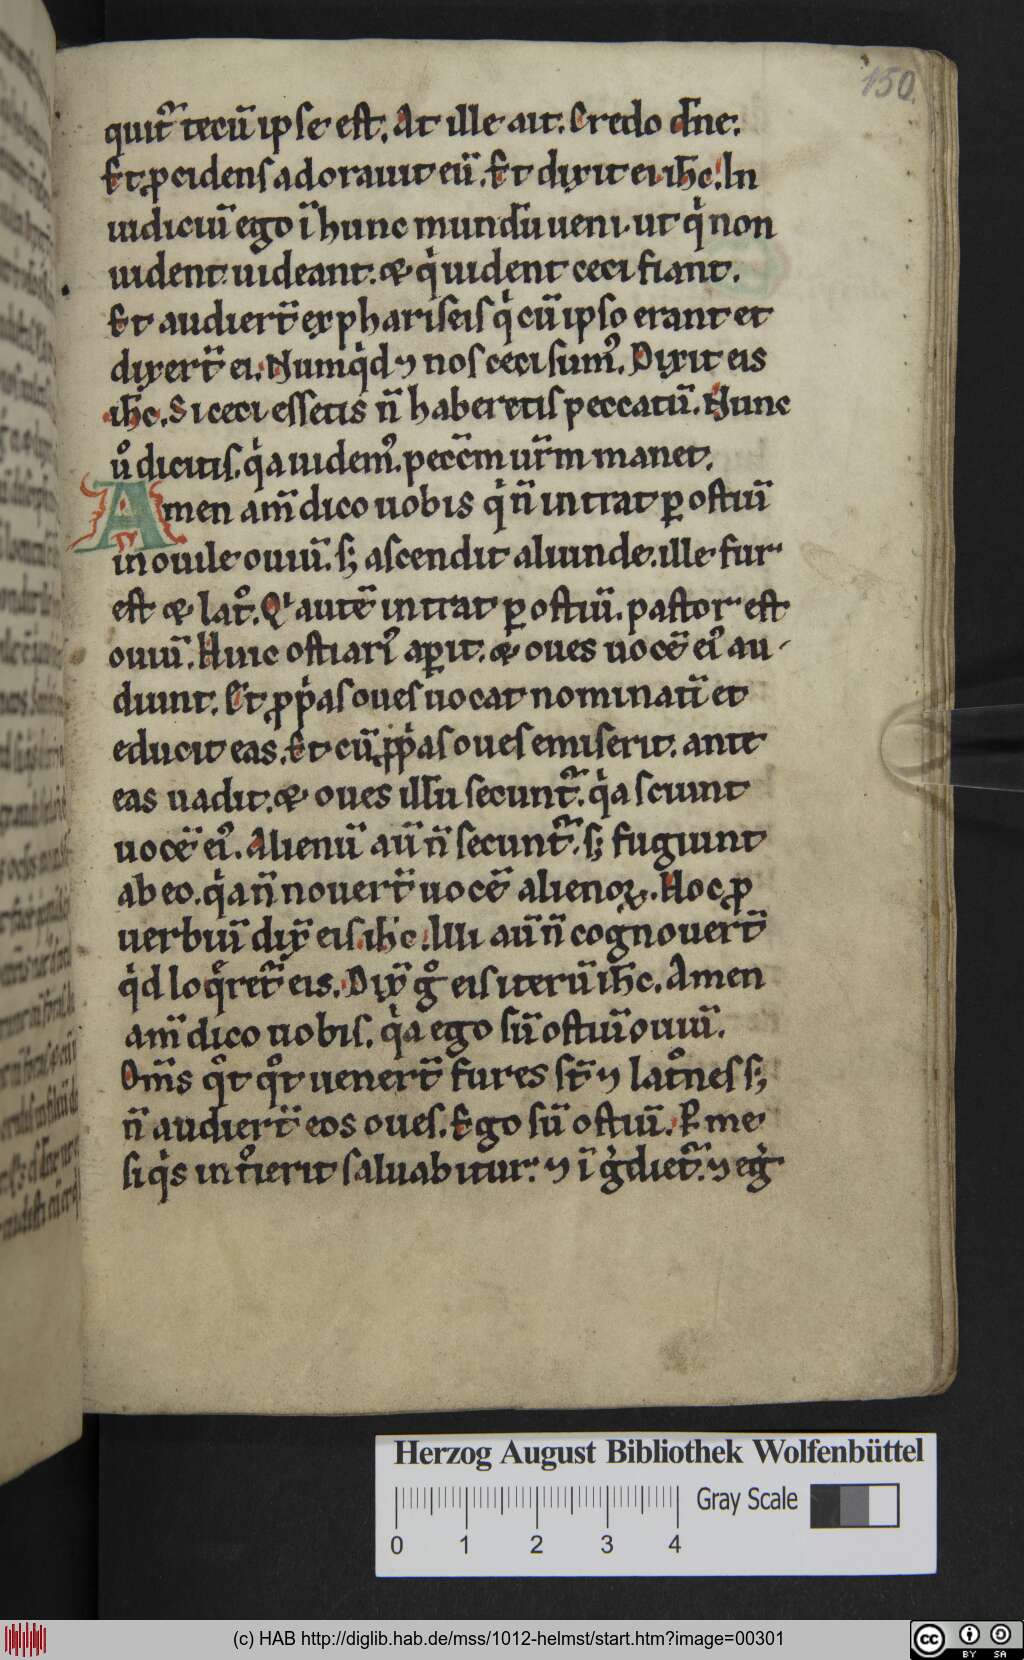 150.
quit᷑ tecū ipse est. At ille ait. Credo dn̄e.
Et ꝓcidens adorauit eū. Et dixit ei ih̄c. In
iudiciū ego ī hunc mundū ueni. ut qͥ non
uident uideant. & qͥ uident ceci fiant.
Et audiert̄ ex phariseis qͥ cū ipso erant et
dixert̄ ei. Numqͥd ⁊ nos ceci sumꝰ. Dixit eis
ih̄c. Si ceci essetis n̄ haberetis peccatū. Nunc
uͦ dicitis. qͥa uidemꝰ. pecc̄m ur̄m manet.
Amen am̄ dico uobis qͥ n̄ intrat ꝑ ostiū
in ouile ouiū. s; ascendit aliunde. ille fur
est & latͦ. Qͥ autē intrat ꝑ ostiū. pastor est
ouiū. Huic ostiariꝰ aꝑit. & oues uocē eiꝰ au-
diunt. Et ꝓpͥas oues uocat nominatī et
educit eas. Et cū ꝓpͥas oues emiserit. ante
eas uadit. & oues illū secunt᷑. qͥa sciunt
uocē eiꝰ. Alienū aū n̄ secunt᷑. s; fugiunt
ab eo. qͥa n̄ nouert̄ uocē alienoꝝ. Hoc ꝓ
uerbiū dix̄ eis ih̄c. Illi aū n̄ cognouert̄
qͥd loqͦret᷑ eis. Dix̄ gͦ eis iterū ih̄c. Amen
am̄ dico uobis. qͥa ego sū ostiū ouiū.
Om̄s qͦt qͦt uenert̄ fures st̄ ⁊ latͦnes s;
n̄ audiert̄ eos oues. Ego sū ostiū. P me
si qͥs intͦierit saluabitur. ⁊ ī gͥdiet᷑. ⁊ egͥ
Herzog August Bibliothek Wolfenbüttel
Gray Scale
0 1 2 3 4
(c) HAB http://diglib.hab.de/mss/1012-helmst/start.htm?image=00301
cc BY SA